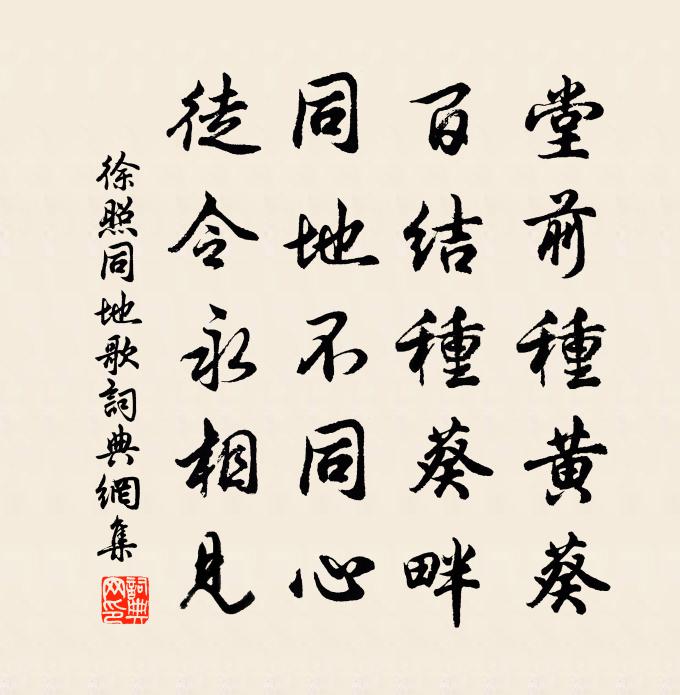 堂前種黃葵
百結種葵畔
同地不同心
徒令永相見
徐照同地歌詞典網集
詞典網印